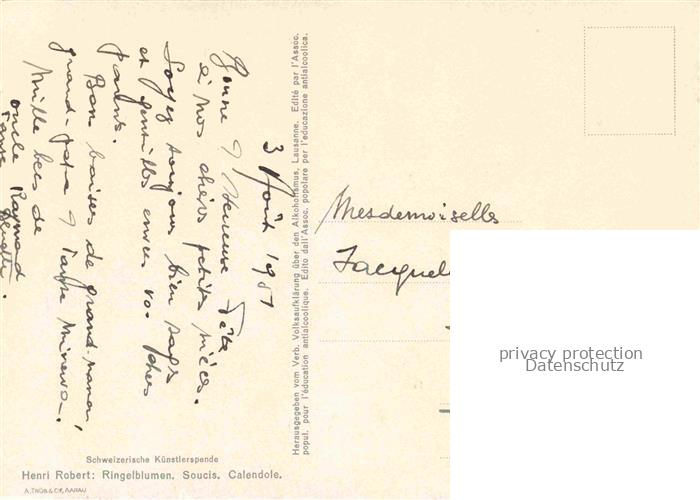 3 Août 1951
Bonne & Heureuse Fête
à nos chères petites nièces.
Soyez toujours bien sages
et gentilles envers vos chers
parents.
Bons baisers de grand-maman,
grand-papa & Tante Minerva.
Mille bons de
oncle Raymond
Tante
Herausgegeben vom Verb. Volksaufklärung über den Alkoholismus, Lausanne. Edité par l'Assoc.
popul. pour l'éducation antialcoolique. Edito dall'Assoc. popolare per l'educazione antialcoolica.
Mesdemoiselles
Jacquel
privacy protection
Datenschutz
Schweizerische Künstlerspende
Henri Robert: Ringelblumen. Soucis. Calendole.
A. TRÜB & CIE, AARAU